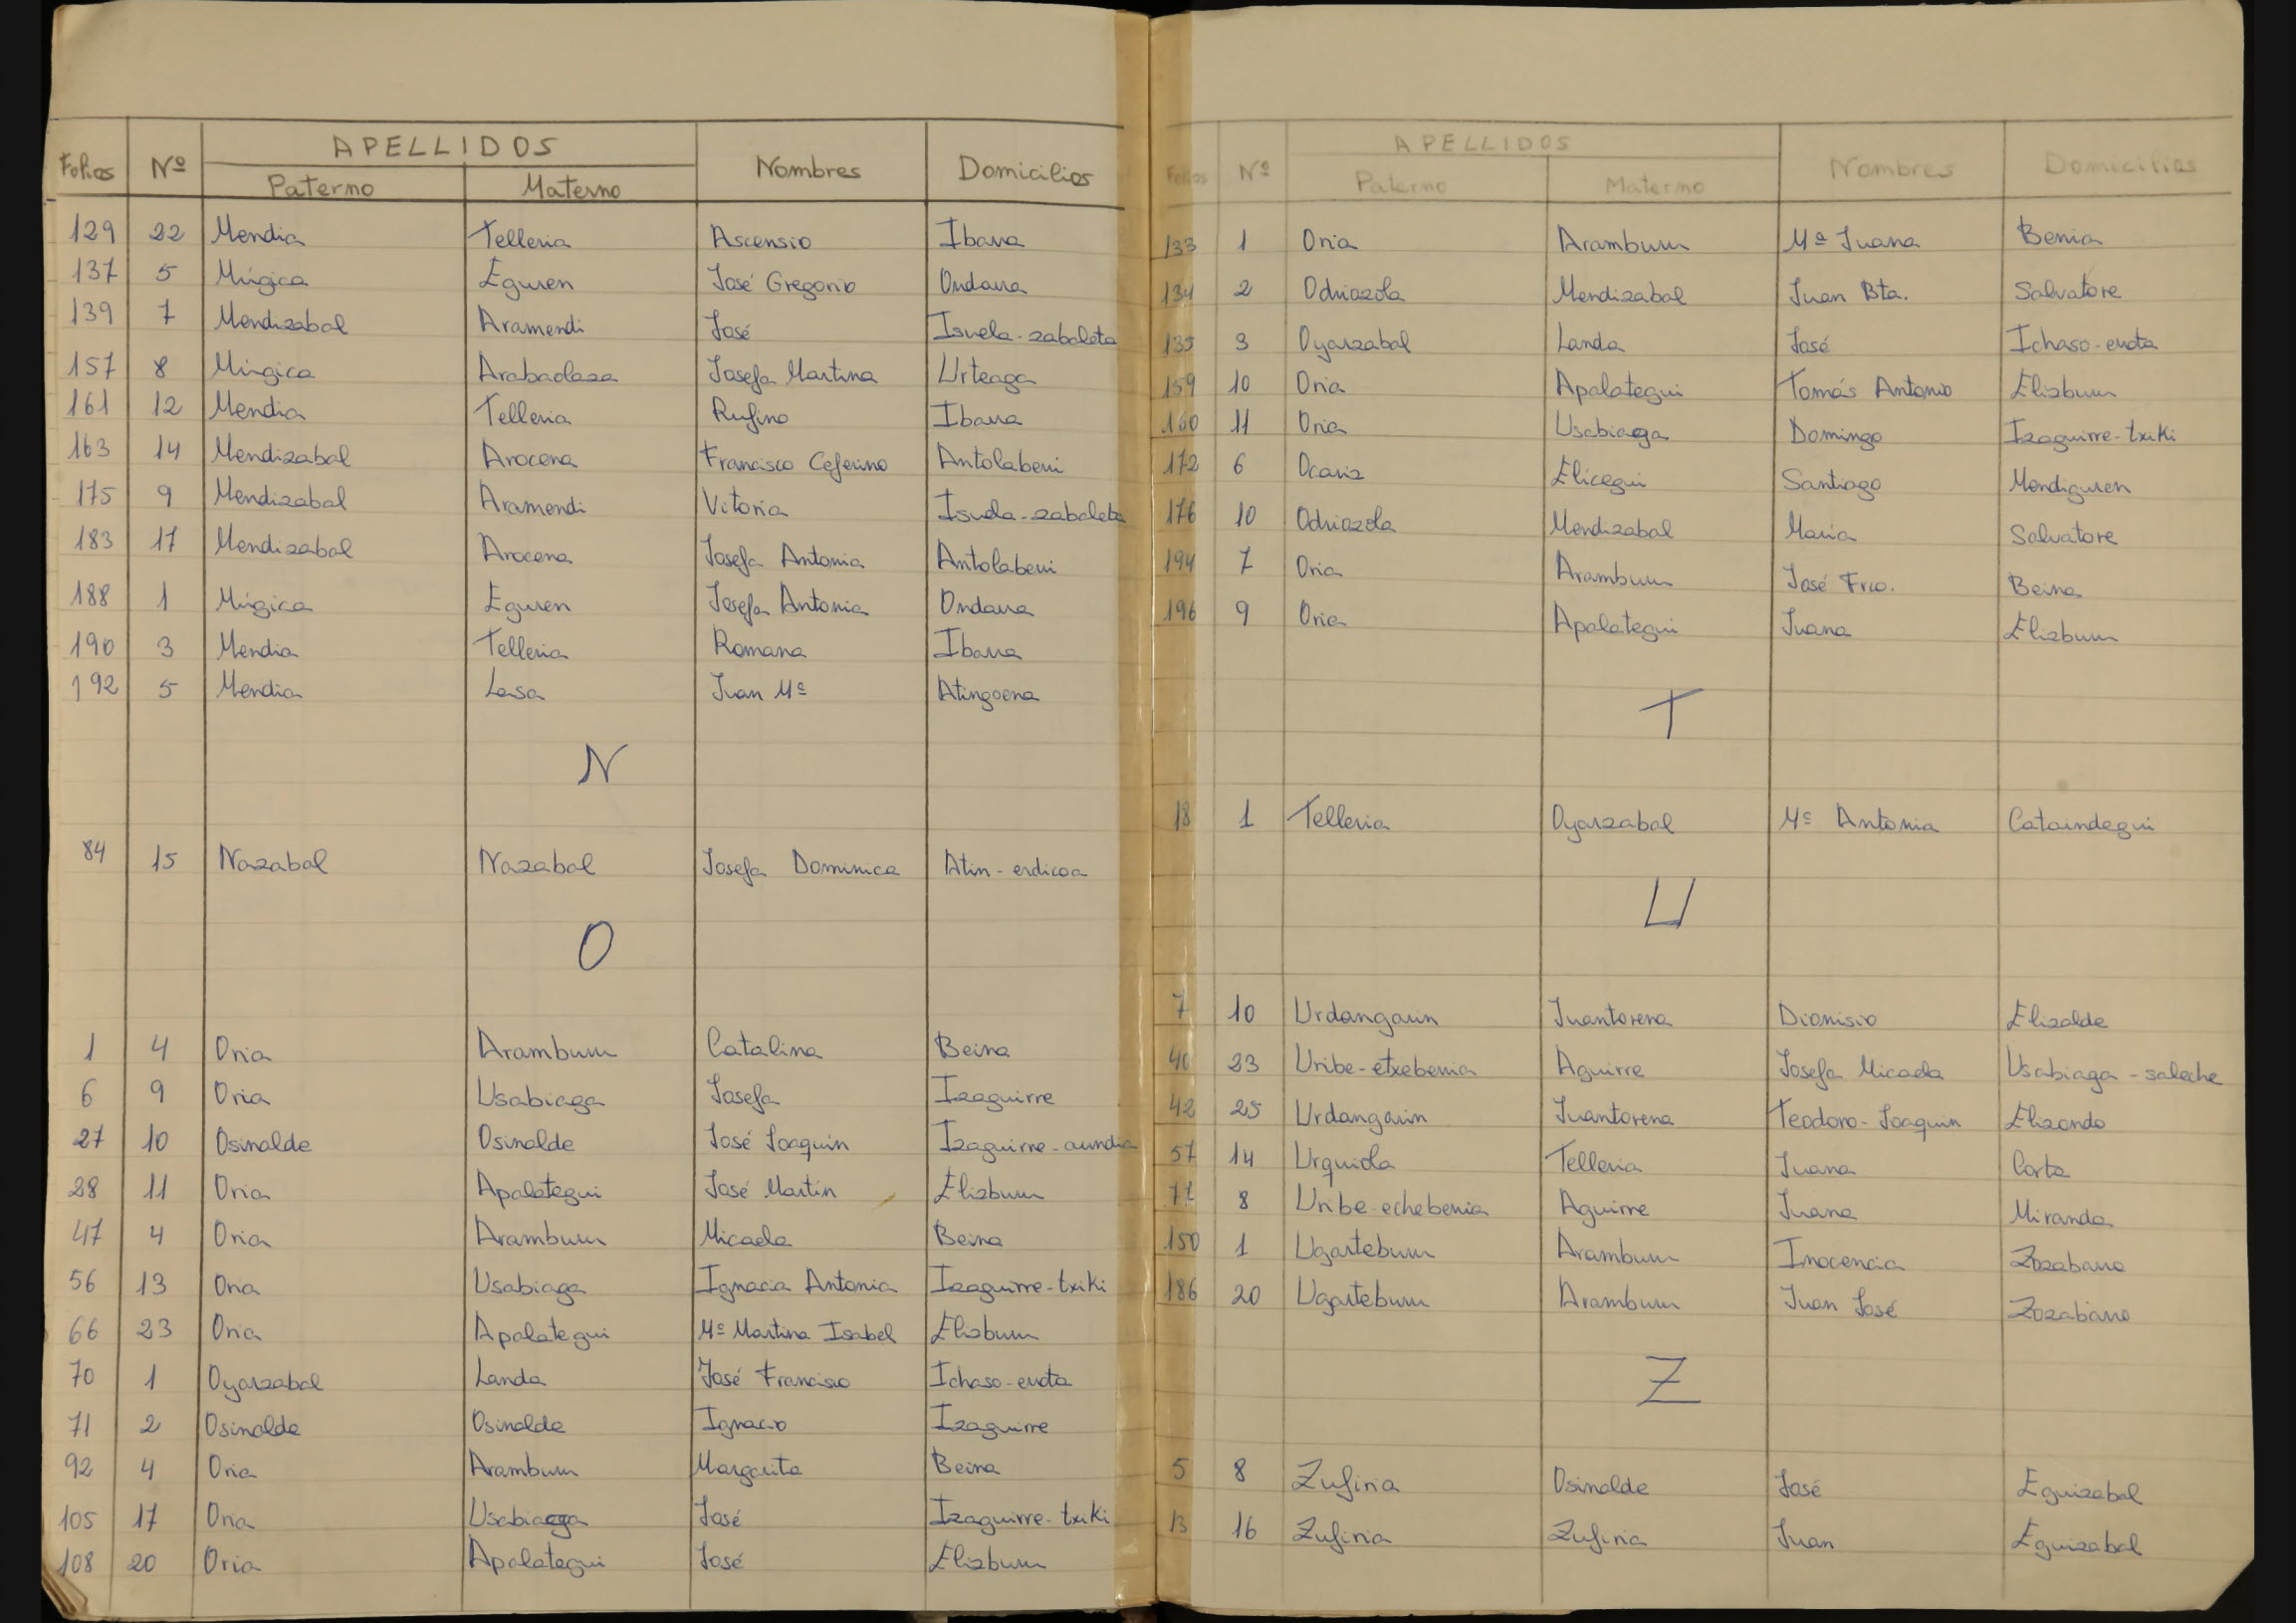 APELLIDOS
Folios Nº Paterno Materno Nombres Domicilios
129 22 Mendia Telleria Ascensio Ibarra
137 5 Múgica Eguren José Gregorio Ondarra
139 7 Mendizabal Aramendi José Isuela-zabaleta
157 8 Múgica Arabaolaza Josefa Martina Urteaga
161 12 Mendia Telleria Rufino Ibarra
163 14 Mendizabal Arocena Francisco Ceferino Antolaberri
175 9 Mendizabal Aramendi Vitoria Isuela-zabaleta
183 17 Mendizabal Arocena Josefa Antonia Antolaberri
188 1 Múgica Eguren Josefa Antonia Ondarra
190 3 Mendia Telleria Romana Ibarra
192 5 Mendia Lasa Juan Mª Atingoena
N
84 15 Nazabal Nazabal Josefa Dominica Atin-erdicoa
O
1 4 Oria Aramburu Catalina Beina
6 9 Oria Usabiaga Josefa Izaguirre
27 10 Osinalde Osinalde José Joaquín Izaguirre-aundia
28 11 Oria Apalategui José Martín Elizburu
47 4 Oria Aramburu Micaela Beina
56 13 Oria Usabiaga Ignacia Antonia Izaguirre-txiki
66 23 Oria Apalategui Mª Martina Isabel Elizburu
70 1 Oyarzabal Landa José Francisco Ichaso-errota
71 2 Osinalde Osinalde Ignacio Izaguirre
92 4 Oria Aramburu Margarita Beina
105 17 Oria Usabiaga José Izaguirre-txiki
108 20 Oria Apalategui José Elizburu
APELLIDOS
Folios Nº Paterno Materno Nombres Domicilios
133 1 Oria Aramburu Mª Juana Benia
134 2 Odriozola Mendizabal Juan Bta. Salvatore
135 3 Oyarzabal Landa José Ichaso-errota
159 10 Oria Apalategui Tomás Antonio Elizburu
160 11 Oria Usabiaga Domingo Izaguirre-txiki
172 6 Ocariz Elicegui Santiago Mendiguren
176 10 Odriozola Mendizabal María Salvatore
194 7 Oria Aramburu José Frco. Beina
196 9 Oria Apalategui Juana Elizburu
T
18 1 Telleria Oyarzabal Mª Antonia Cataindegui
U
7 10 Urdangarin Juantorena Dionisio Elizalde
40 23 Uribe-etxeberria Aguirre Josefa Micaela Usabiaga-saleche
42 25 Urdangarin Juantorena Teodoro-Joaquin Elizondo
57 14 Urquiola Telleria Juana Corta
8 Uribe-echeberria Aguirre Juana Miranda
150 1 Ugarteburu Aramburu Inocencia Zozabarro
186 20 Ugarteburu Aramburu Juan José Zozabarro
Z
5 8 Zufiria Osinalde José Eguizabal
13 16 Zufiria Zufiria Juan Eguizabal